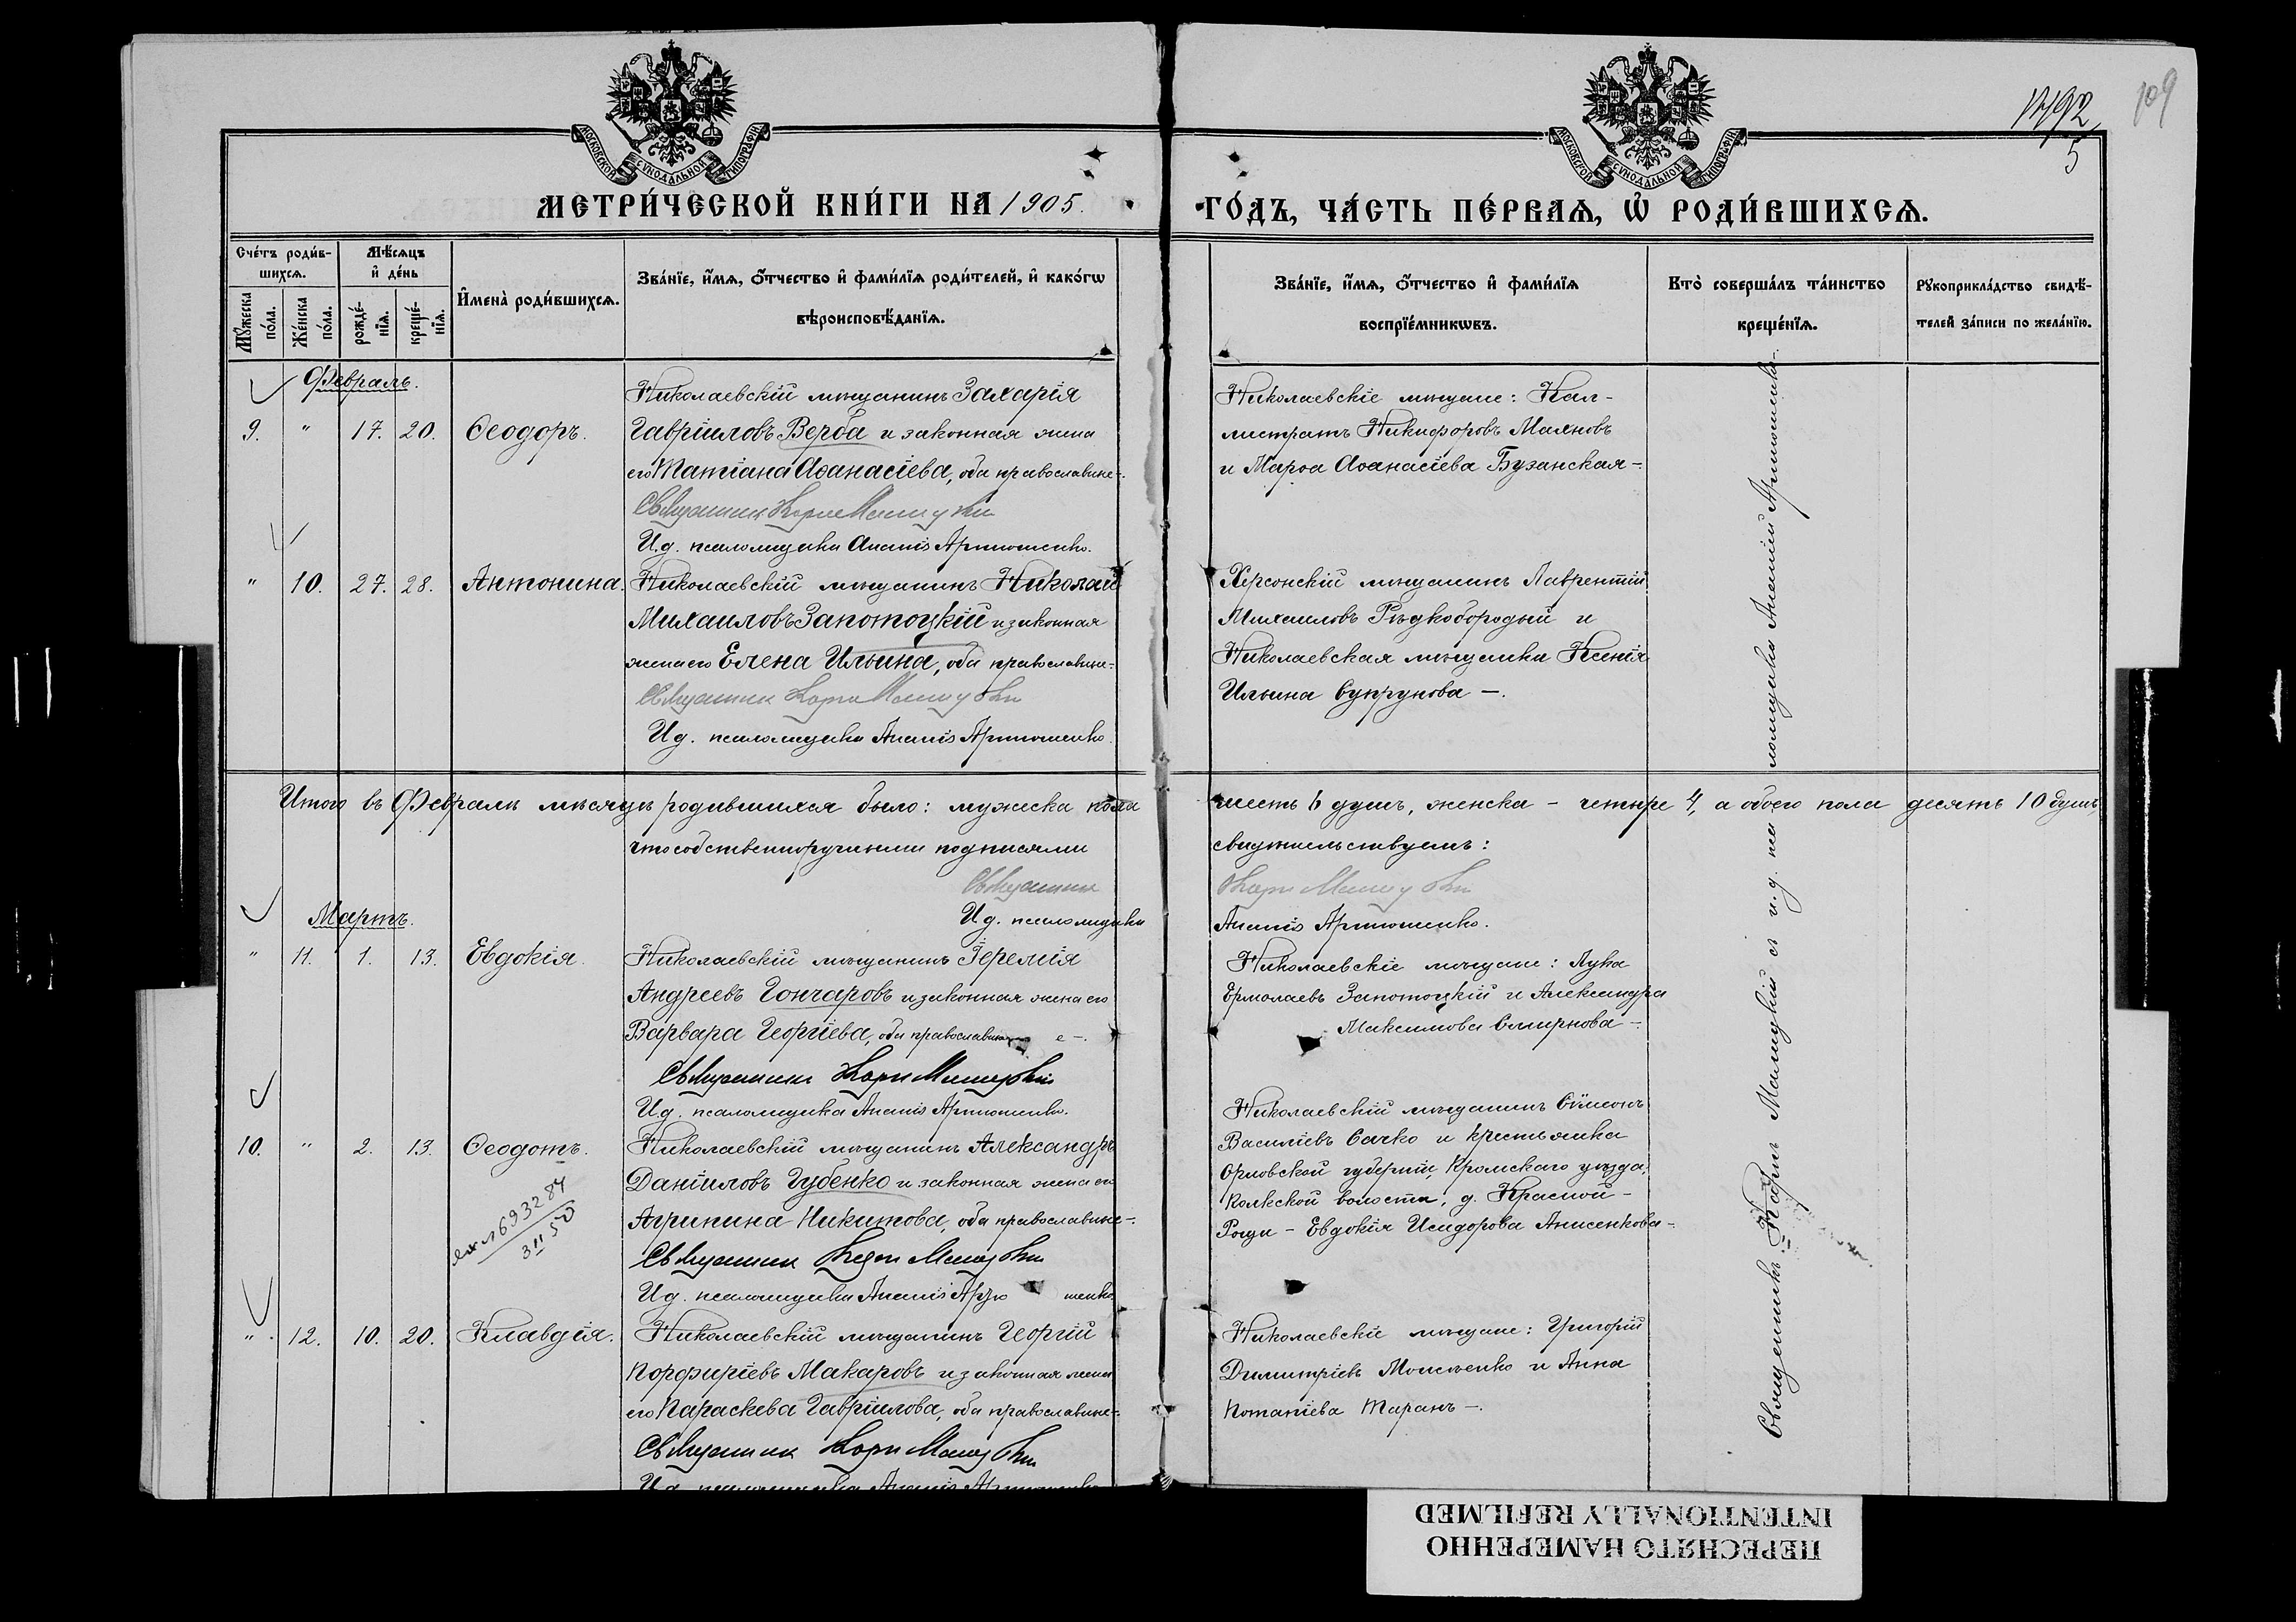 МОСКОВСКОЙ СѴНОДАЛЬНОЙ ТИПОГРАФІИ
МОСКОВСКОЙ СѴНОДАЛЬНОЙ ТИПОГРАФІИ
1792
109
5
МЕТРИ́ЧЕСКОЙ КНИ́ГИ НА 1905. ГО́ДЪ, ЧА́СТЬ ПЕ́РВАѦ, Ѡ҆ РОДИ́ВШИХСѦ.
Сче́тъ роди́в-
шихсѧ.
Мꙋ́жеска по́ла.
Же́нска по́ла.
Мѣ́сѧцъ
и҆ де́нь
рожде́-
нїѧ.
креще́-
нїѧ.
И҆мена̀ роди́вшихсѧ.
Зва́нїе, и҆́мѧ, ѻ҆́тчество и҆ фами́лїѧ роди́телей, и҆ како́гѡ
вѣроисповѣ́данїѧ.
Зва́нїе, и҆́мѧ, ѻ҆́тчество и҆ фами́лїѧ
воспрїе́мникѡвъ.
Кто̀ соверша́лъ та́инство
креще́нїѧ.
Рꙋкоприкла́дство свидѣ́-
телей за́писи по жела́нїю.
Февраль.
9. " 17. 20. Ѳеодоръ.
Николаевскій мѣщанинъ Захарія
Гавріиловъ Верба и законная жена
его Татіана Аѳанасіева, оба православные-.
Священник
И.д. псаломщика Ананій Артюшенко.
Николаевскіе мѣщане: Кал-
листратъ Никифоровъ Маяновъ
и Марѳа Аѳанасіева Бузанская-.
" 10. 27. 28. Антонина.
Николаевскій мѣщанинъ Николай
Михаиловъ Запотоцкій и законная
жена его Елена Ильина, оба православные-
Священник
И.д. псаломщика Ананій Артюшенко.
Херсонскій мѣщанинъ Лаврентій
Михаиловъ Рѣдкобородый и
Николаевская мѣщанка Ксенія
Ильина Супрунова -.
Итого въ Февралѣ мѣсяцѣ родившихся было: мужеска пола шесть 6 душъ, женска - четыре 4, а обоего пола десять 10 душъ,
что собственноручными подписями свидѣтельствуемъ:
Священник
И.д. псаломщика Ананій Артюшенко.
Мартъ.
" 11. 1. 13. Евдокія.
Николаевскій мѣщанинъ Іеремія
Андреевъ Гончаровъ и законная жена его
Варвара Георгіева, оба православные-.
Священник
И.д. псаломщика Ананій Артюшенко.
Николаевскіе мѣщане: Лука
Ермолаевъ Запотоцкій и Александра
Максимова Смирнова-.
10. " 2. 13. Ѳеодотъ.
693284
Николаевскій мѣщанинъ Александръ
Даніиловъ Губенко и законная жена его
Агрипина Никитова, оба православные-.
Священник
И.д. псаломщика Ананій Артюшенко.
Николаевскій мѣщанинъ Сѵмеонъ
Василіевъ Сачко и крестьянка
Орловской губерніи, Кромскаго уѣзда,
волости, д. Красной-
Рощи - Евдокія Исидорова Анисенкова-.
" 12. 10. 20. Клавдія.
Николаевскій мѣщанинъ Георгій
Порфиріевъ Макаровъ и законная жена
его Параскева Гавріилова, оба православные-.
Священник
И.д. псаломщика Ананій Артюшенко
Николаевскіе мѣщане: Григорій
Димитріевъ Моисеенко и Анна
Потапіева Таранъ-.
Священникъ съ и.д. псаломщика Ананій Артюшенко.
ПЕРЕСНЯТО НАМЕРЕННО
INTENTIONALLY REFILMED